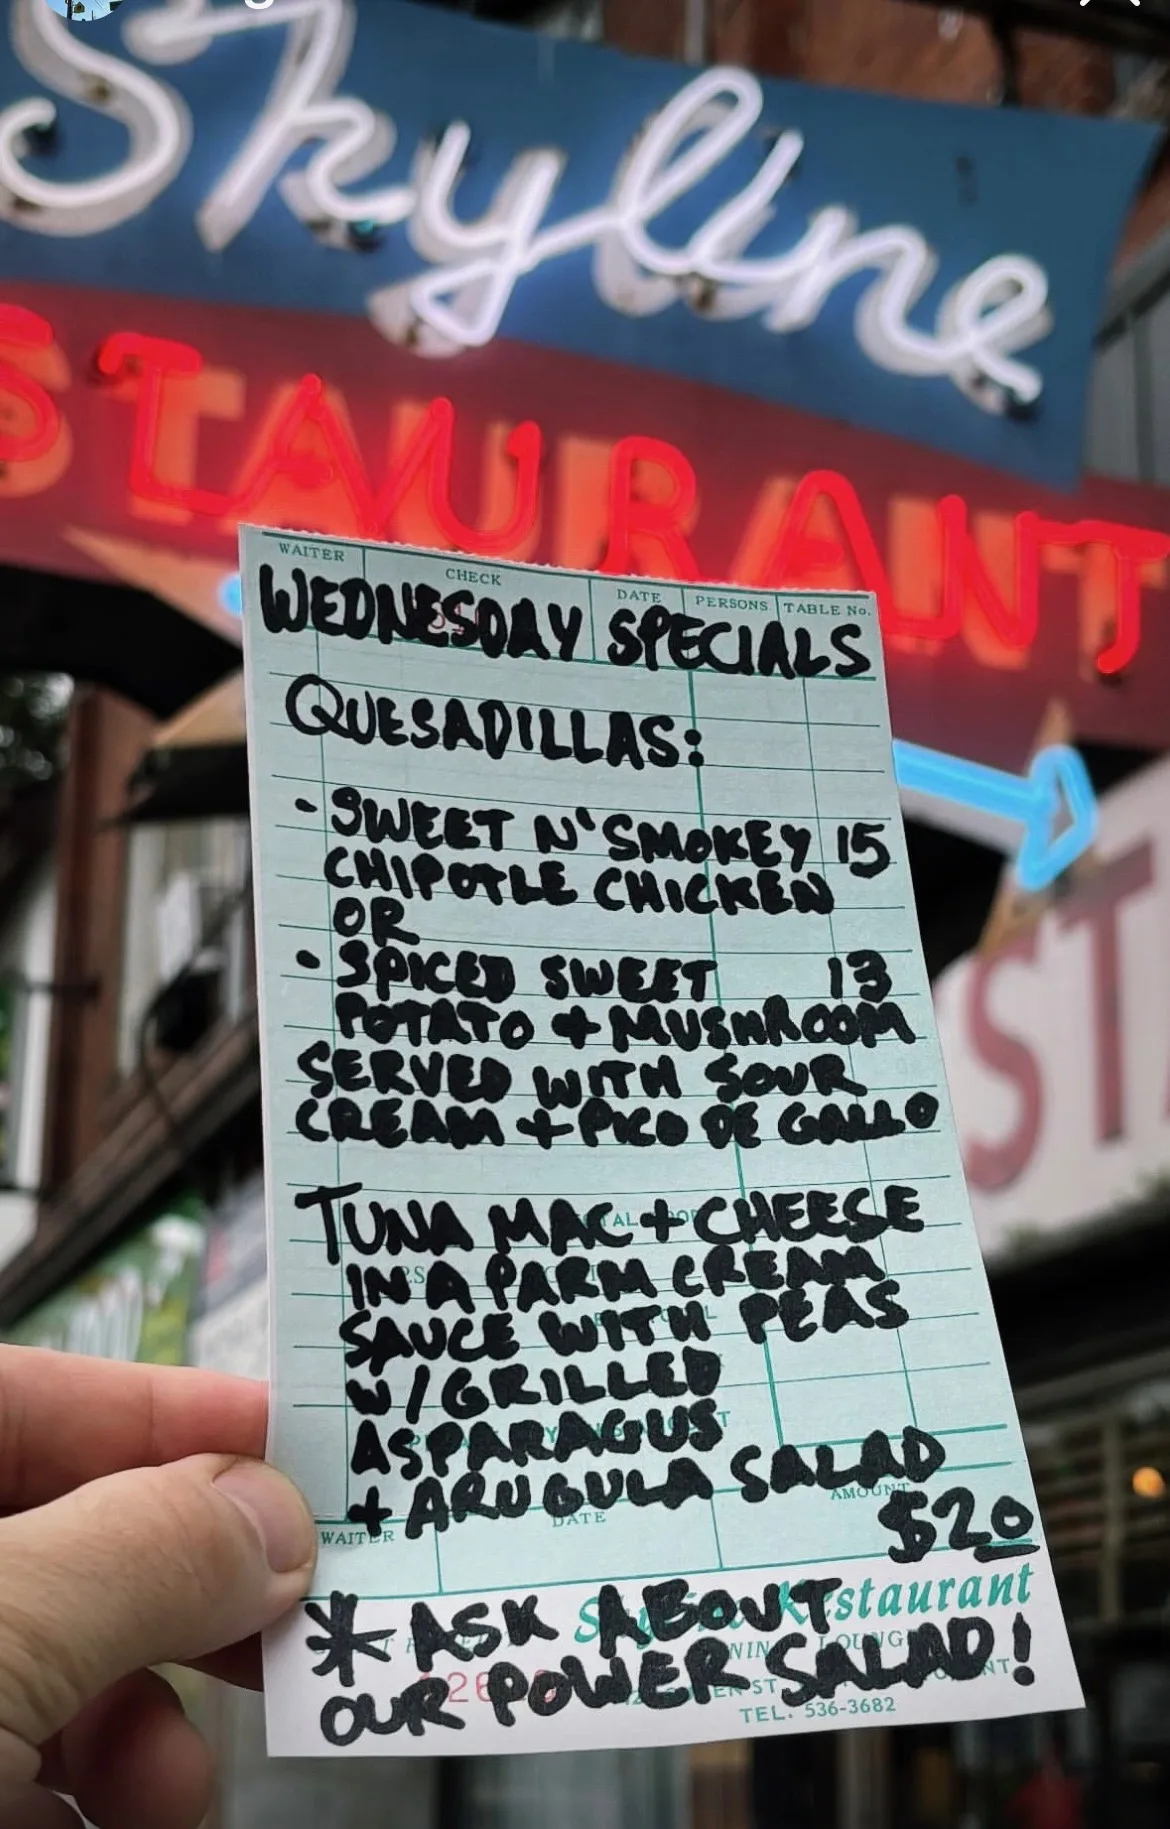 Skyline
STAURANT
ST
WAITER CHECK DATE PERSONS TABLE No.
WEDNESDAY SPECIALS
QUESADILLAS:
- SWEET N' SMOKEY 15
CHIPOTLE CHICKEN
OR
• SPICED SWEET 13
POTATO + MUSHROOM
SERVED WITH SOUR
CREAM + PICO DE GALLO
TUNA MAC + CHEESE
IN A PARM CREAM
SAUCE WITH PEAS
W/ GRILLED
ASPARAGUS
+ ARUGULA SALAD
AMOUNT
$20
WAITER DATE
Skyline Restaurant
* ASK ABOUT
OUR POWER SALAD!
TEL. 536-3682